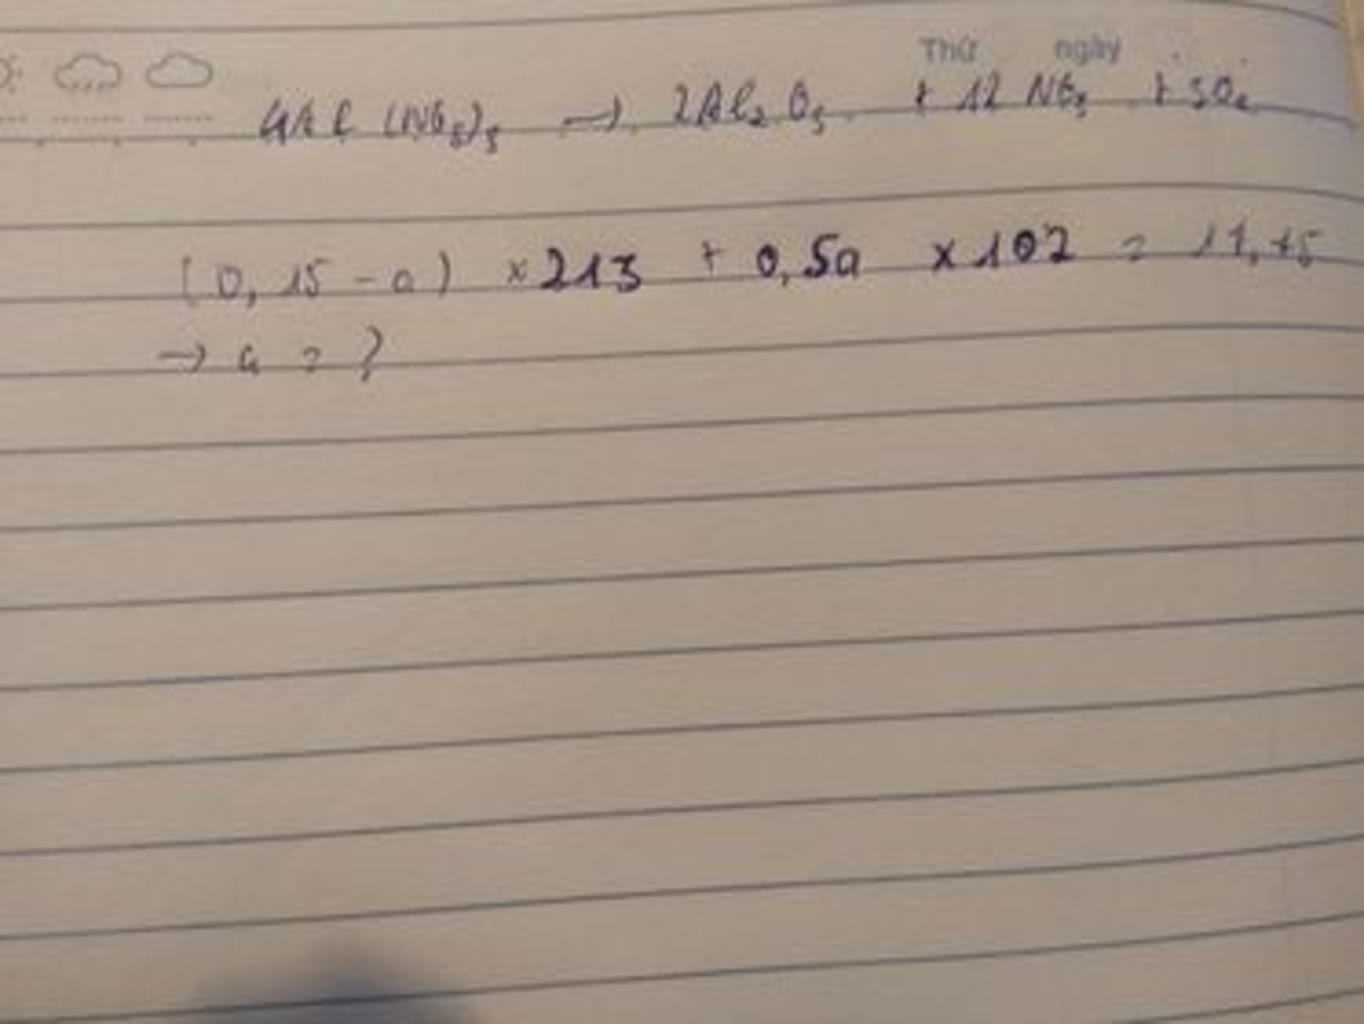 Thứ ngày
4Al(NO₃)₃ → 2Al₂O₃ + 12 NO₂ + 3O₂
(0,15 - a) × 213 + 0,5a × 102 =
→ a = ?